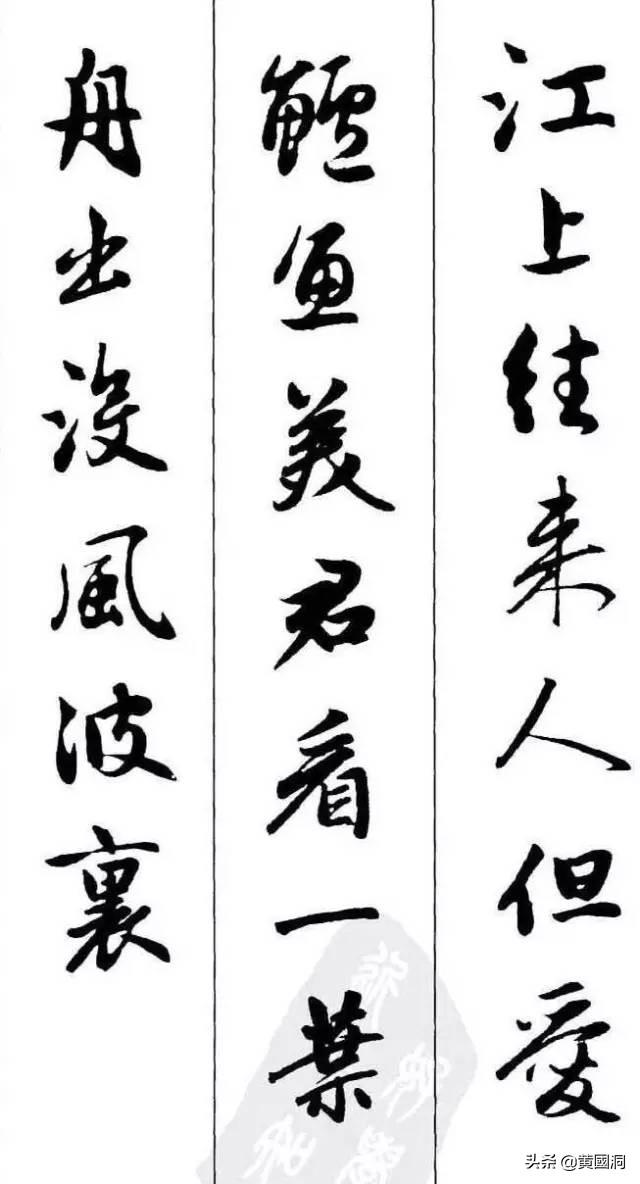 江上往来人但愛
鱸魚美君看一葉
舟出沒風波裏
头条 @黄國洞